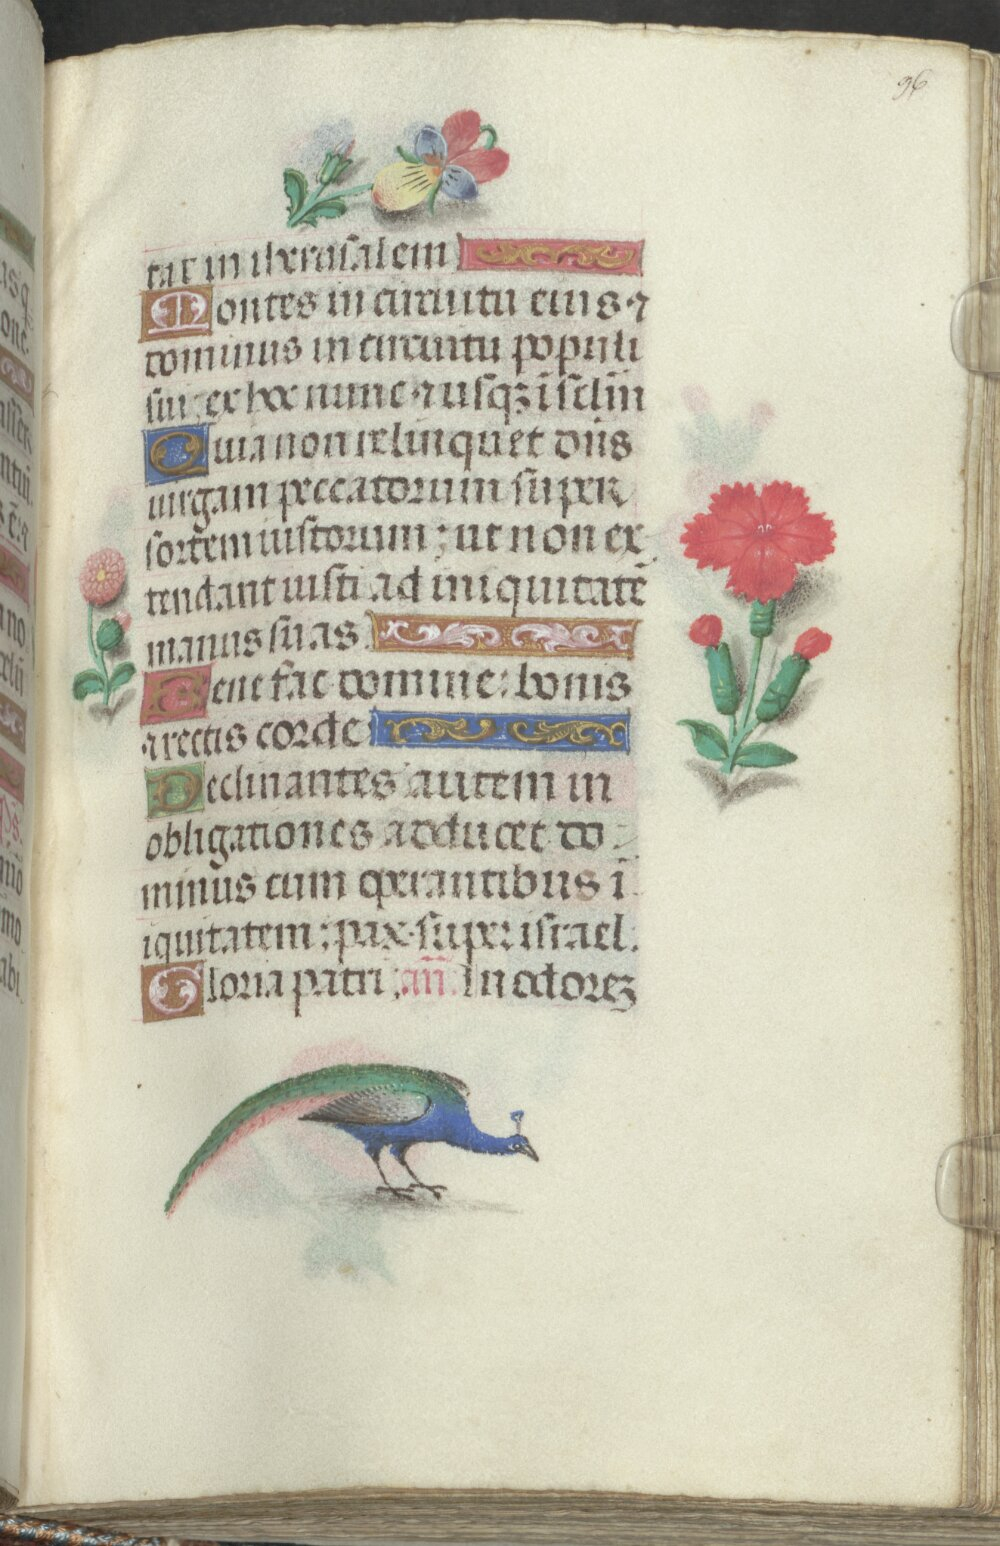 96
tat in iherusalem
Montes in circuitu eius ⁊
dominus in circuitu populi
sui: ex hoc nunc ⁊ usqȝ ī sclm̄
Quia non relinquet dn̄s
uirgam peccatorum super
sortem iustorum; ut non ex
tendant iusti ad iniquitatē
manus suas
Bene fac domine: bonis
⁊ rectis corde
Declinantes autem in
obligationes adducet do-
minus cum operantibus ī
iquitatem; pax super israel.
Gloria patri; an̄. In odoreȝ